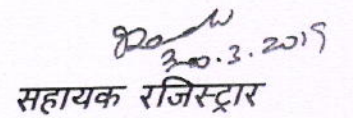 30.3.2019
सहायक रजिस्ट्रार